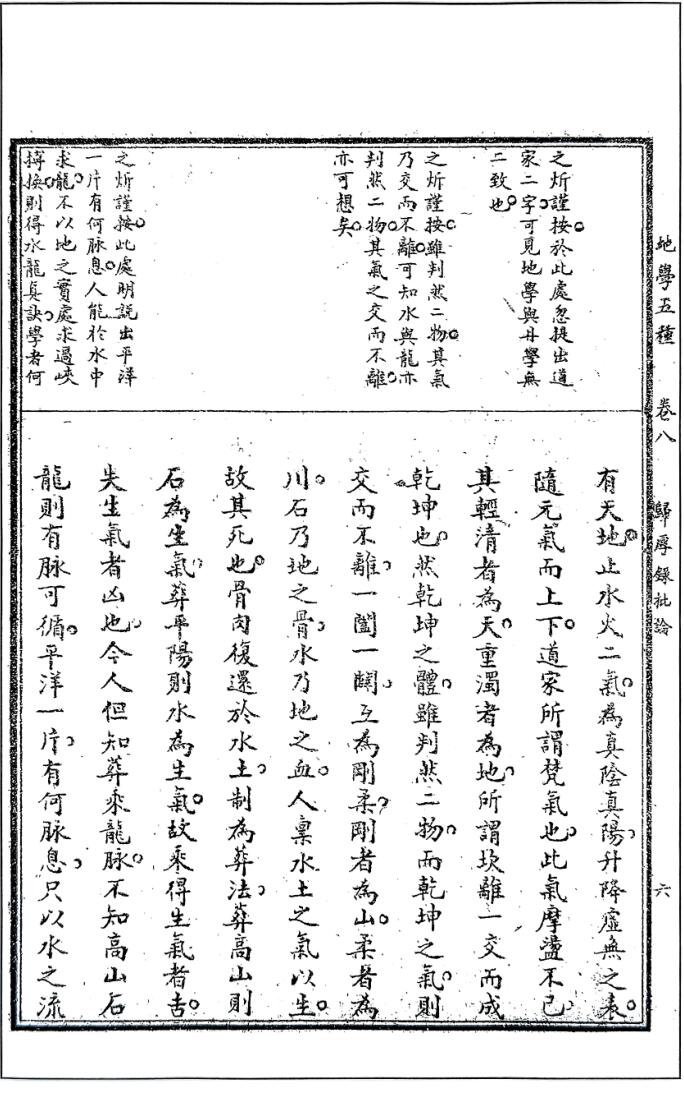 地學五種　卷八　歸厚錄批論　六
之炘謹按於此處忽提出道
家二字可見地學與丹學無
二致也
之炘謹按雖判然二物其氣
乃交而不離可知水與龍亦
判然二物其氣之交而不離
亦可想矣
之炘謹按此處明説出平洋
一片有何脉息人能於水中
求龍不以地之實處求過峽
摶換則得水龍真訣學者何
有天地止水火二氣為真陰真陽升降虛無之表
隨元氣而上下道家所謂梵氣也此氣摩盪不已
其輕清者為天重濁者為地所謂坎離一交而成
乾坤也然乾坤之體雖判然二物而乾坤之氣則
交而不離一闔一闢互為剛柔剛者為山柔者為
川石乃地之骨水乃地之血人稟水土之氣以生
故其死也骨肉復還於水土制為葬法葬高山則
石為生氣葬平陽則水為生氣故乘得生氣者吉
失生氣者凶也今人但知葬乘龍脉不知高山石
龍則有脉可循平洋一片有何脉息只以水之流